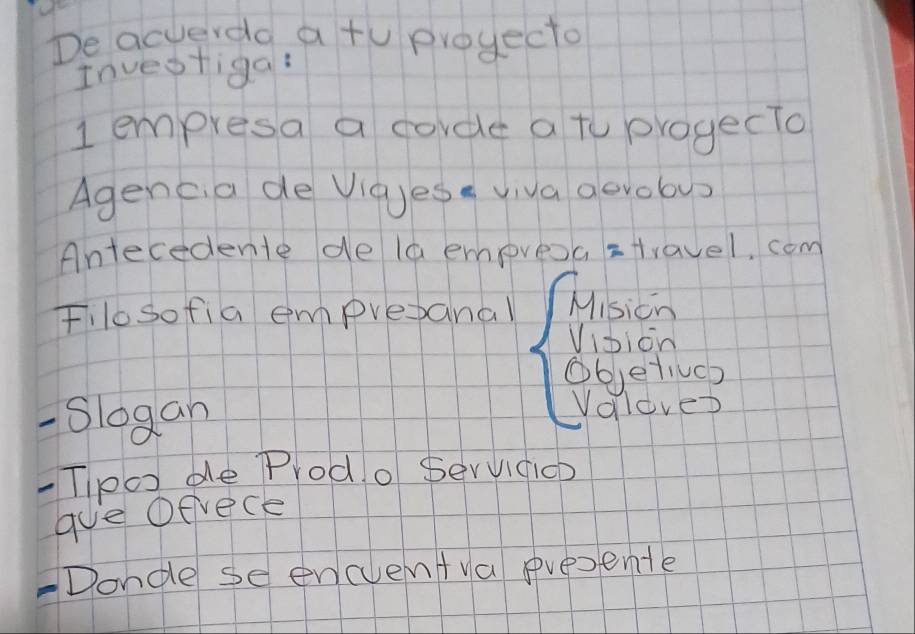 De acuerdo a tu proyecto
Investiga:
1 empresa a corde a tu proyecto
Agencia de Viajes viva aerobus
Antecedente de la empresa = travel.com
Filosofia empresarial { Misión
Visión
Objetivos
Valores
- Slogan
- Tipos de Prod. o Servicios
que Ofrece
- Donde se encuentra presente